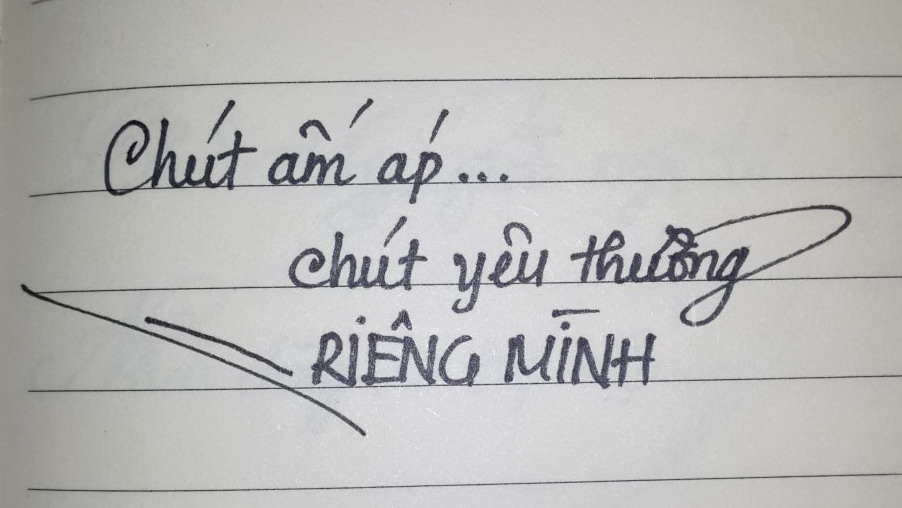 Chút ấm áp...
chút yêu thương
RIÊNG MÌNH